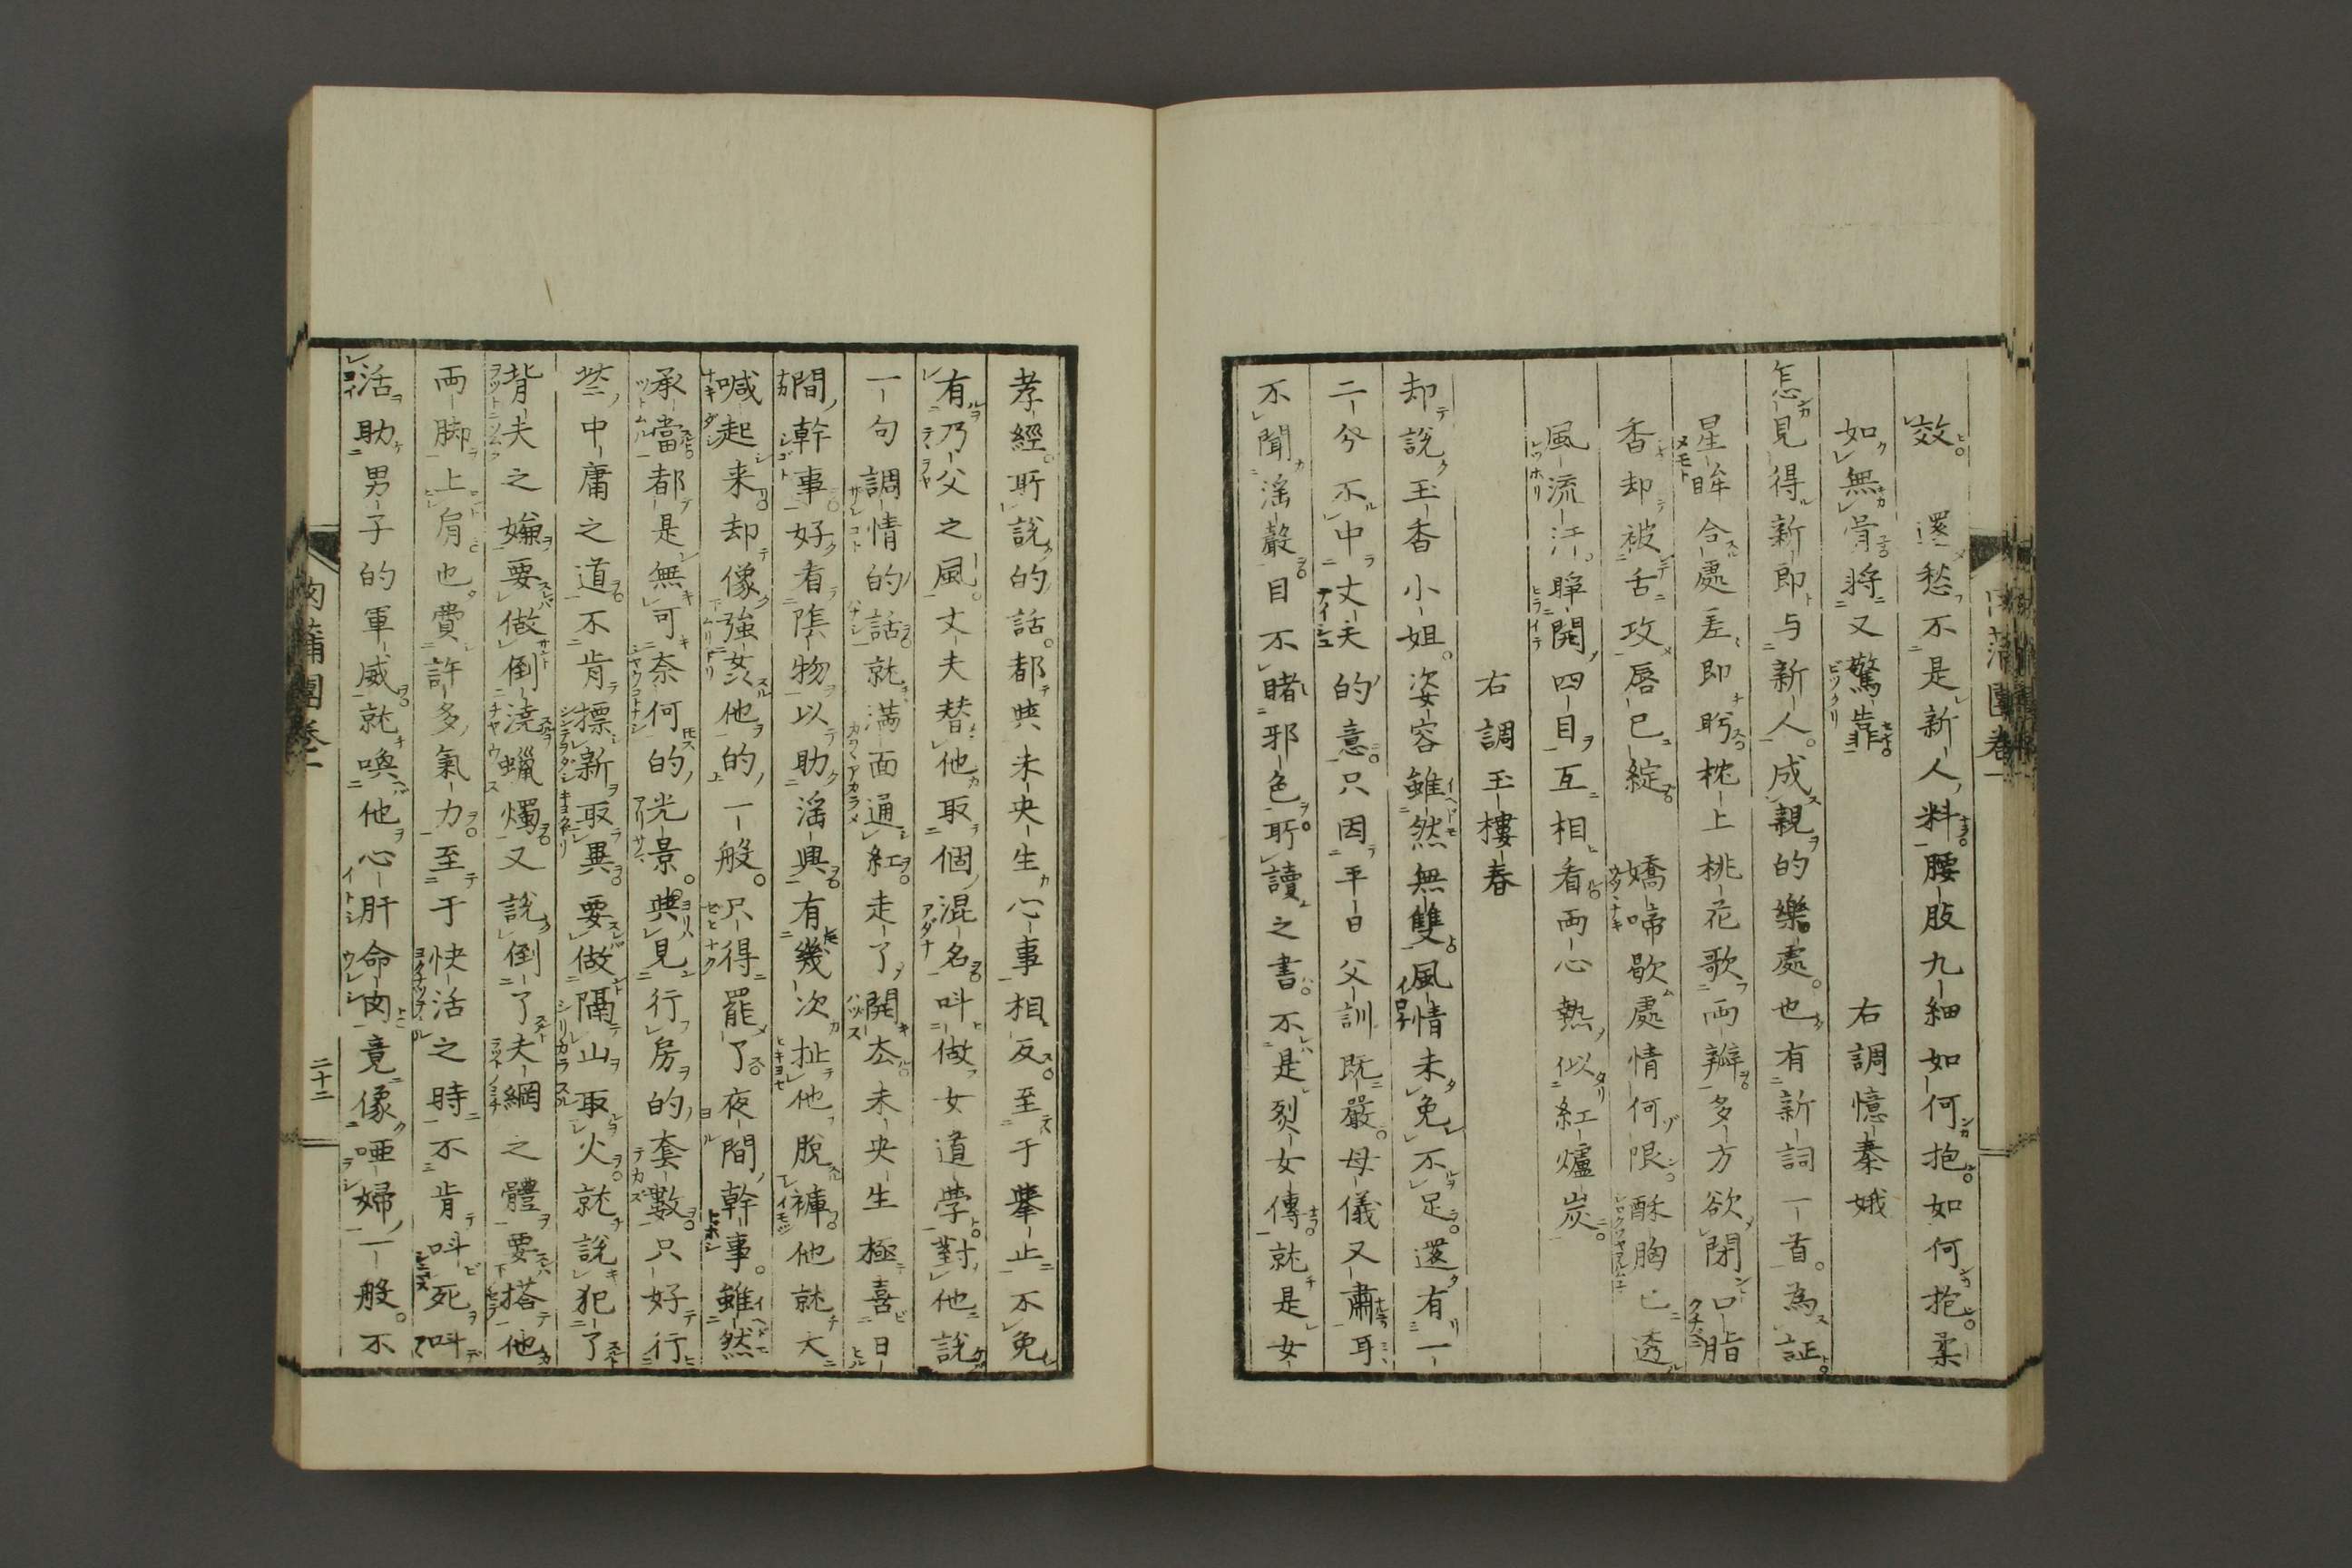 效 還愁不是新人料腰肢九細如何抱如何抱柔
如無骨將又驚靠 右調憶秦娥
怎見得新郎与新人成親的樂處也有新詞一首為証
星眸合處差即盻枕上桃花歌兩瓣多方欲閉口脂
香却被舌攻唇已綻 嬌啼歇處情何限酥胸已透
風流汗睜開四目互相看兩心熱似紅爐炭
右調玉樓春
却說玉香小姐姿容雖然無雙風情未免不足還有一
二分不中丈夫的意只因平日父訓既嚴母儀又肅耳
不聞滛聲目不睹邪色所讀之書不是烈女傳就是女
孝經所說的話都與未央生心事相反至于舉止不免
有乃父之風丈夫替他取個混名叫做女道學對他說
一句調情的話就滿面通紅走了開去未央生極喜日
間幹事好看隂物以助滛興有幾次扯他脫褲他就大
喊起来却像強姦他的一般只得罷了夜間幹事雖然
承當都是無可奈何的光景與見行房的套數只好行
些中庸之道不肯標新取異要做隔山取火就說犯了
背夫之嫌要做倒澆蠟燭又說倒了夫綱之體要搭他
兩脚上肩也費許多氣力至于快活之時不肯叫死叫
活助男子的軍威就喚他心肝命肉竟像啞婦一般不
肉蒲團卷一
二十二